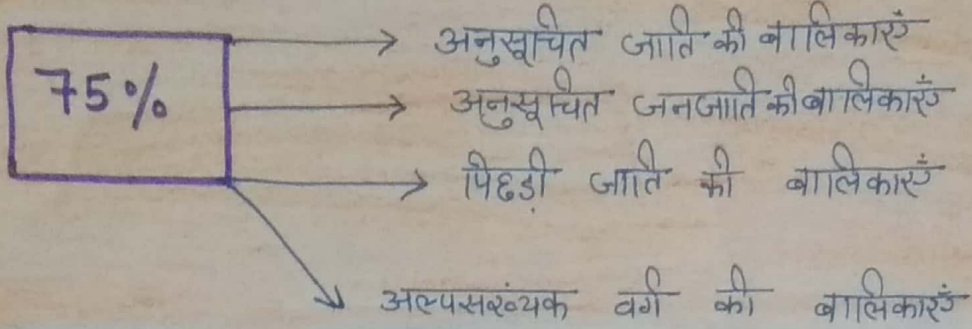 75%
अनुसूचित जाति की बालिकाएँ
अनुसूचित जनजाति की बालिकाएँ
पिछड़ी जाति की बालिकाएँ
अल्पसंख्यक वर्ग की बालिकाएँ